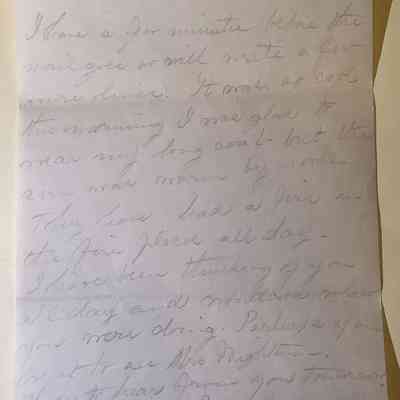 I have a few minutes before the
mail goes so will write a few
more lines. It was so cool
this morning I was glad to
wear my long coat but the
sun was warm by
They have had a fire in
the fire place all day.
I have been thinking of you
all day and
you were doing. Perhaps you
went to see Mrs
to hear from you tomorrow